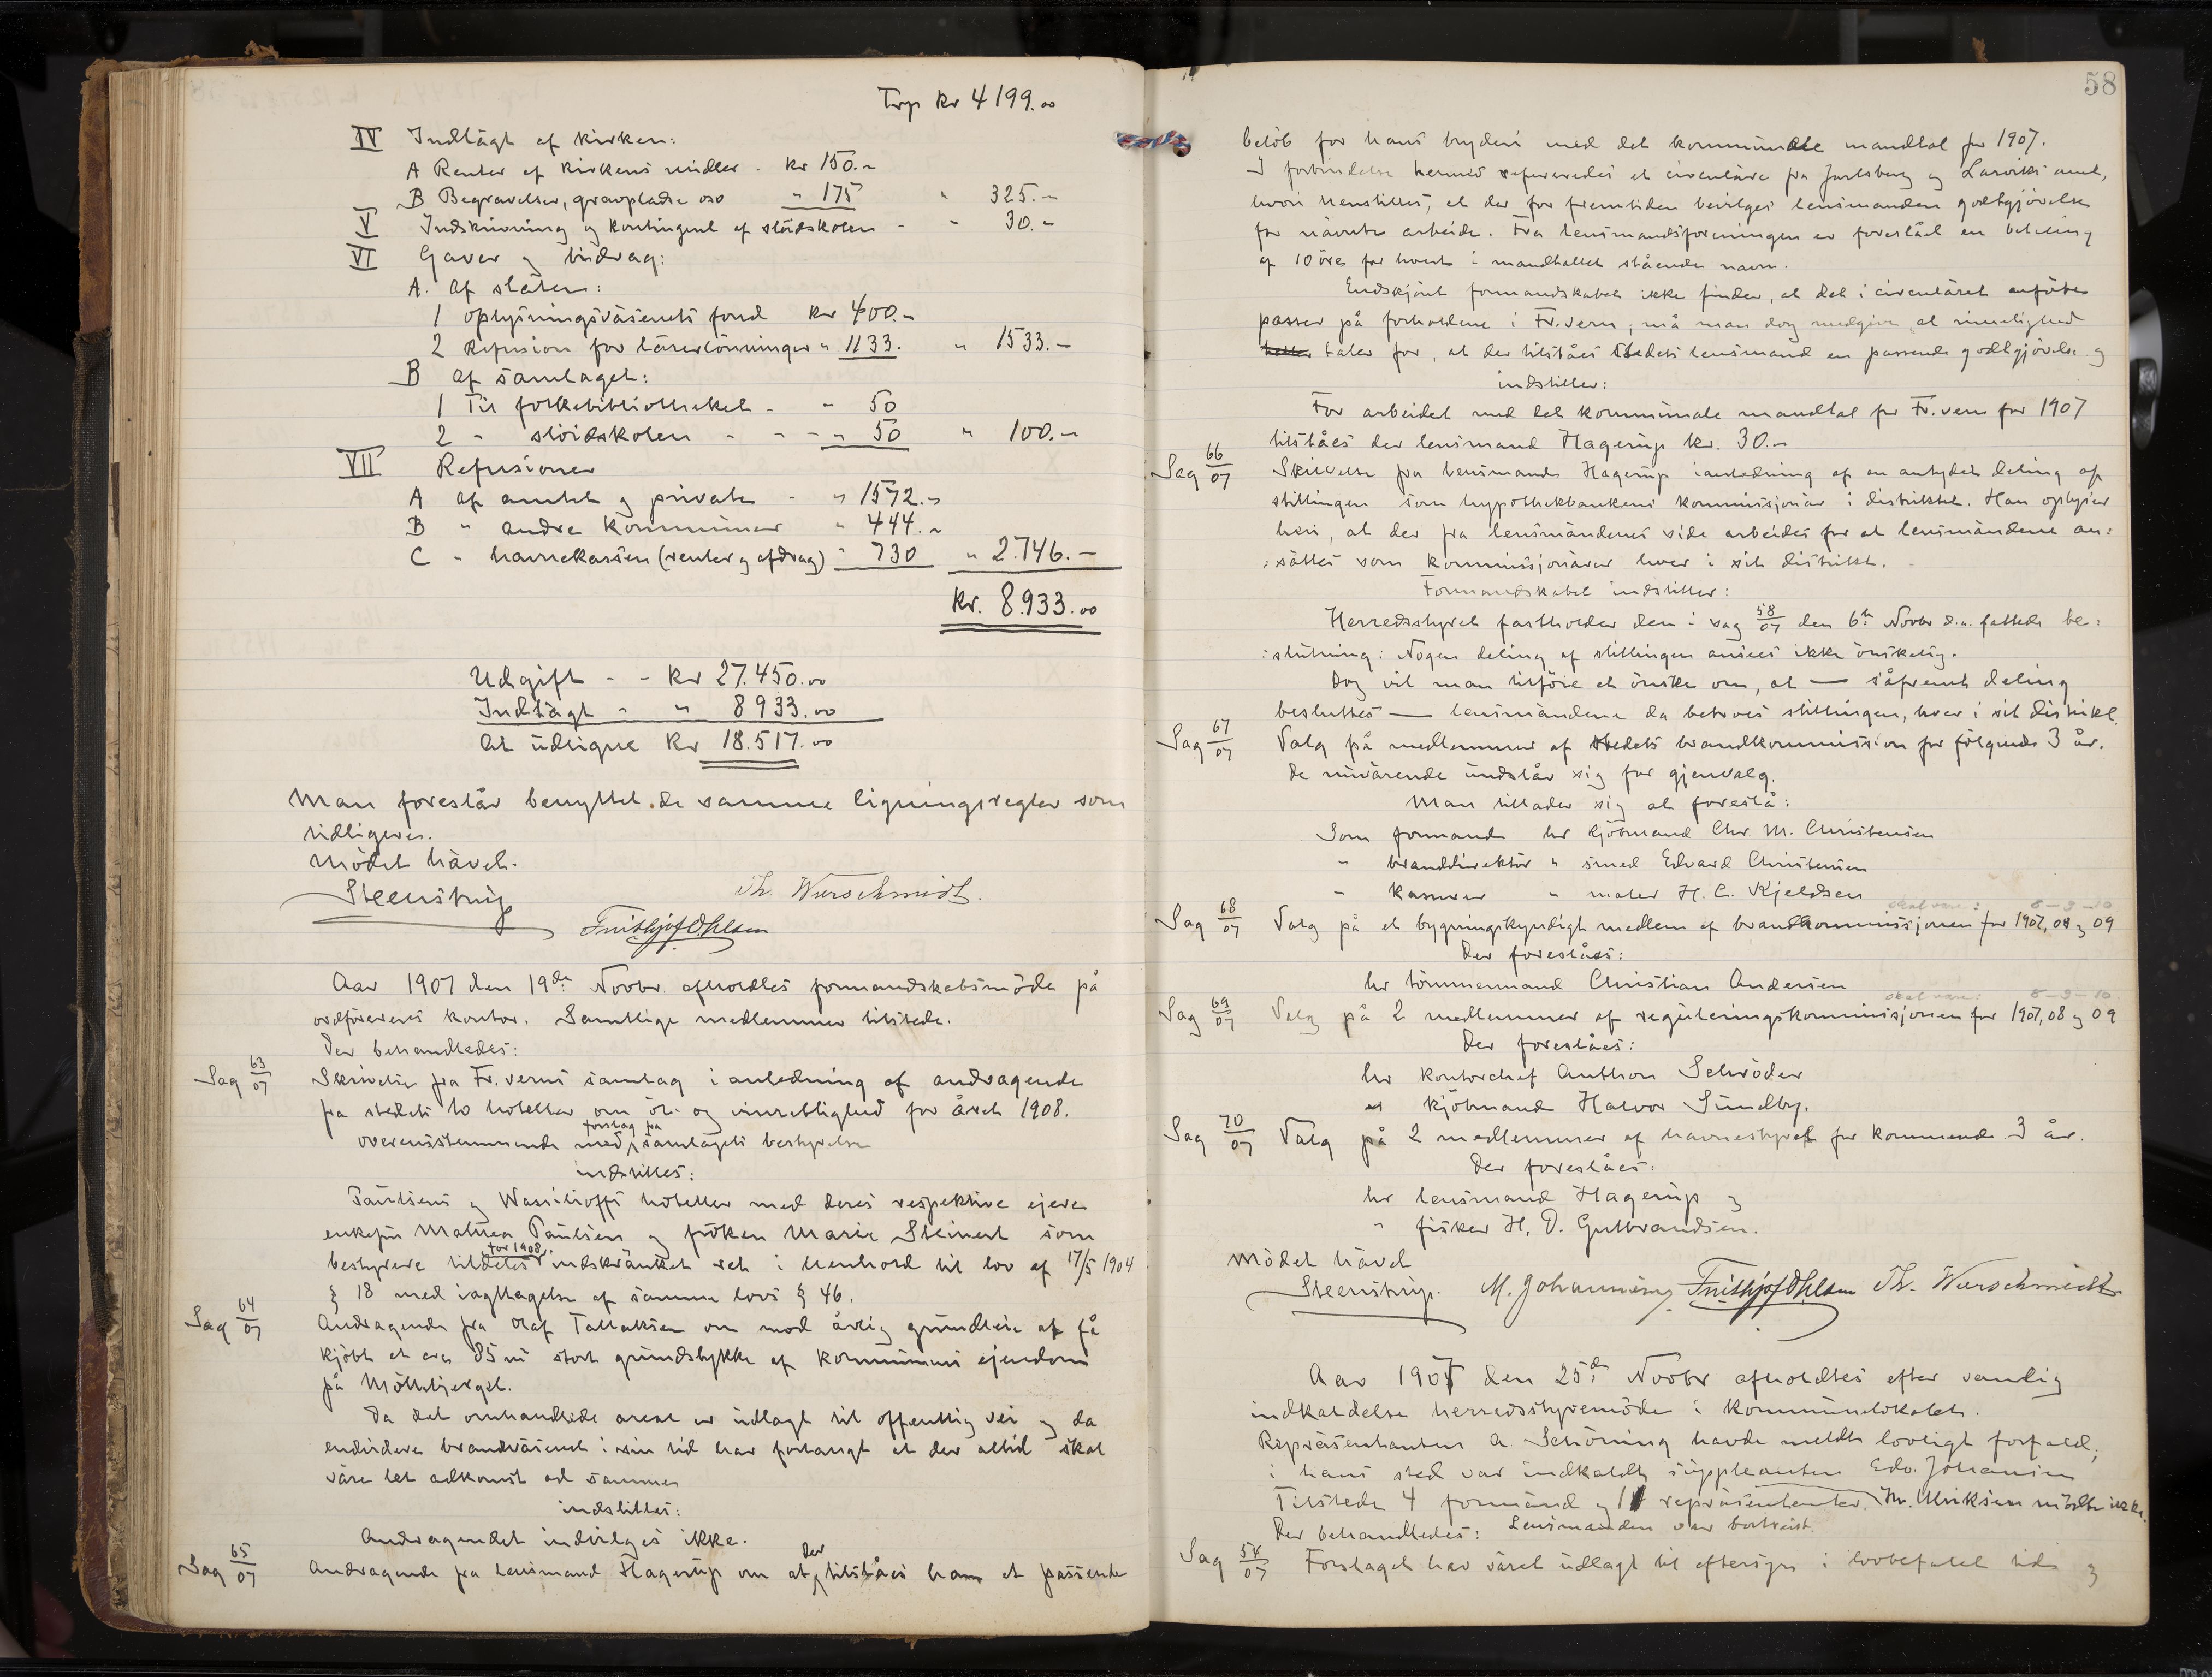 Trp kr 4199.00
IV Indtägt af kirken:
A Renter af kirkens midler - kr 150.-
B Begravelser, gravpladse osv " 175 " 325.-
V Indskrivning og kontingent af slöidskolen - - 30.-
VI Gaver og bidrag:
A. af staten:
1 oplysningsväsenets fond kr 400.-
2 Refusion for lärerlönninger " 1133. " 1533.-
B af samlaget:
1 Til folkebibliotheket - - 50
2 - slöidskolen - - - " 50 " 100.-
VII Refusioner
A af amtet og private - " 1572.-
B " andre kommuner " 444.-
C " havnekassen (renter og afdrag) - 730 " 2.746.-
kr. 8.933.00
Udgift - - kr 27.450.00
Indtägt - " 8933.00
At udligne kr 18.517.00
Man foreslår benyttet de samme ligningsregler som
tidligere.
Mödet hävet.
Steenstrup Th. Wurschmidt.
Frithjof Ohlsen
Aar 1907 den 19de Novbr. afholdtes formandskabsmöde på
ordförerens kontor. Samtlige medlemmer tilstede.
Der behandledes:
Sag 63/07 Skrivelse fra Fr.verns samlag i anledning af andragende
fra stedets to hoteller om öl- og vinrettighed for året 1908.
overensstemmende med forslag fra samlagets bestyrelse
indstilles:
Paulsens og Wassilioffs hoteller med deres respektive ejere
enkefru Mathea Paulsen og fröken Marie Steinert som
bestyrere tildeles for 1908 indskränket ret i henhold til lov af 17/5 1904
§ 18 med iagttagelse af samme lovs § 46.
Sag 64/07 Andragende fra Olaf Tallaksen om mod årlig grundleie at få
kjöbt et ca 85 m stort grundstykke af kommunens ejendom
på Möllebjerget.
Da det omhandlede areal er udlagt til offentlig vei og da
endvidere brandväsenet i sin tid har forlangt at der altid skal
väre let adkomst ad samme
indstilles:
Andragendet indvilges ikke.
Sag 65/07 Andragende fra lensmand Hagerup om at der tilståes ham et passende
58
belöb for hans bryderi med det kommunale mandtal for 1907.
I forbindelse hermed refereredes et cirkuläre fra Jarlsberg og Larviks amt,
hvori henstilles, at der for fremtiden bevilges lensmanden godtgjörelse
for nävnte arbeide. Fra lensmandsforeningen er foreslået en betaling
af 10 öre for hvert i mandtallet stående navn.
Endskjönt formandskabet ikke finder, at det i circuläret anförte
passer på forholdene i Fr.vern, må man dog medgive, at rimelighed
taler for, at der tilståes stedets lensmand en passende godtgjörelse og
indstiller:
For arbeidet med det kommunale mandtal for Fr.vern for 1907
tilståes der lensmand Hagerup kr. 30.-
Sag 66/07 Skrivelse fra lensmand Hagerup i anledning af en antydet deling af
stillingen som hypothekbankens kommissjonär i distriktet. Han oplyser
heri, at der fra lensmändenes side arbeides for at lensmändene an=
=sättes som kommissjonärer hver i sit distrikt.
Formandskabet indstiller:
Herredsstyret fastholder den i sag 58/07 den 6te Novbr d.a. fattede be=
=slutning: Nogen deling af stillingen ansees ikke önskelig.
Dog vil man tilföie et önske om, at — såfremt deling
besluttes — lensmändene da betroes stillingen, hver i sit distrikt.
Sag 67/07 Valg på medlemmer af stedets brandkommission for fölgende 3 år.
De nuvärende undslår sig for gjenvalg.
Man tillader sig at foreslå:
Som formand hr kjöbmand Chr. M. Christensen
" branddirektör " smed Edvard Christensen
" kasserer " maler H. C. Kjeldsen
skal väre: 8-9-10
Sag 68/07 Valg på et bygningskyndigt medlem af brandkommissjonen for 1907, 08 og 09
Der foreslåes:
hr tömmermand Christian Andersen
skal väre: 8-9-10.
Sag 69/07 Valg på 2 medlemmer af reguleringskommissjonen for 1907, 08 og 09
Der foreslåes:
hr kontorchef Anthon Schröder
" kjöbmand Halvor Sundby.
Sag 70/07 Valg på 2 medlemmer af havnestyret for kommende 3 år.
Der foreslåes:
hr lensmand Hagerup og
" fisker H. D. Gulbrandsen.
Mödet hävet
Steenstrup. M. Johannesen Frithjof Ohlsen Th. Wurschmidt
Aar 1907 den 25de Novbr afholdtes efter vanlig
indkaldelse herredsstyremöde i kommunelokalet.
Repräsentanten A. Schöning havde meldt lovligt forfald;
i hans sted var indkaldt suppleanten Edv. Johansen
Tilstede 4 formänd og 11 repräsentanter. Hr. Ulriksen mödte ikke.
Der behandledes: Lensmanden var bortreist.
Sag 54/07 Forslaget har väret udlagt til eftersyn i lovbefalet tid og